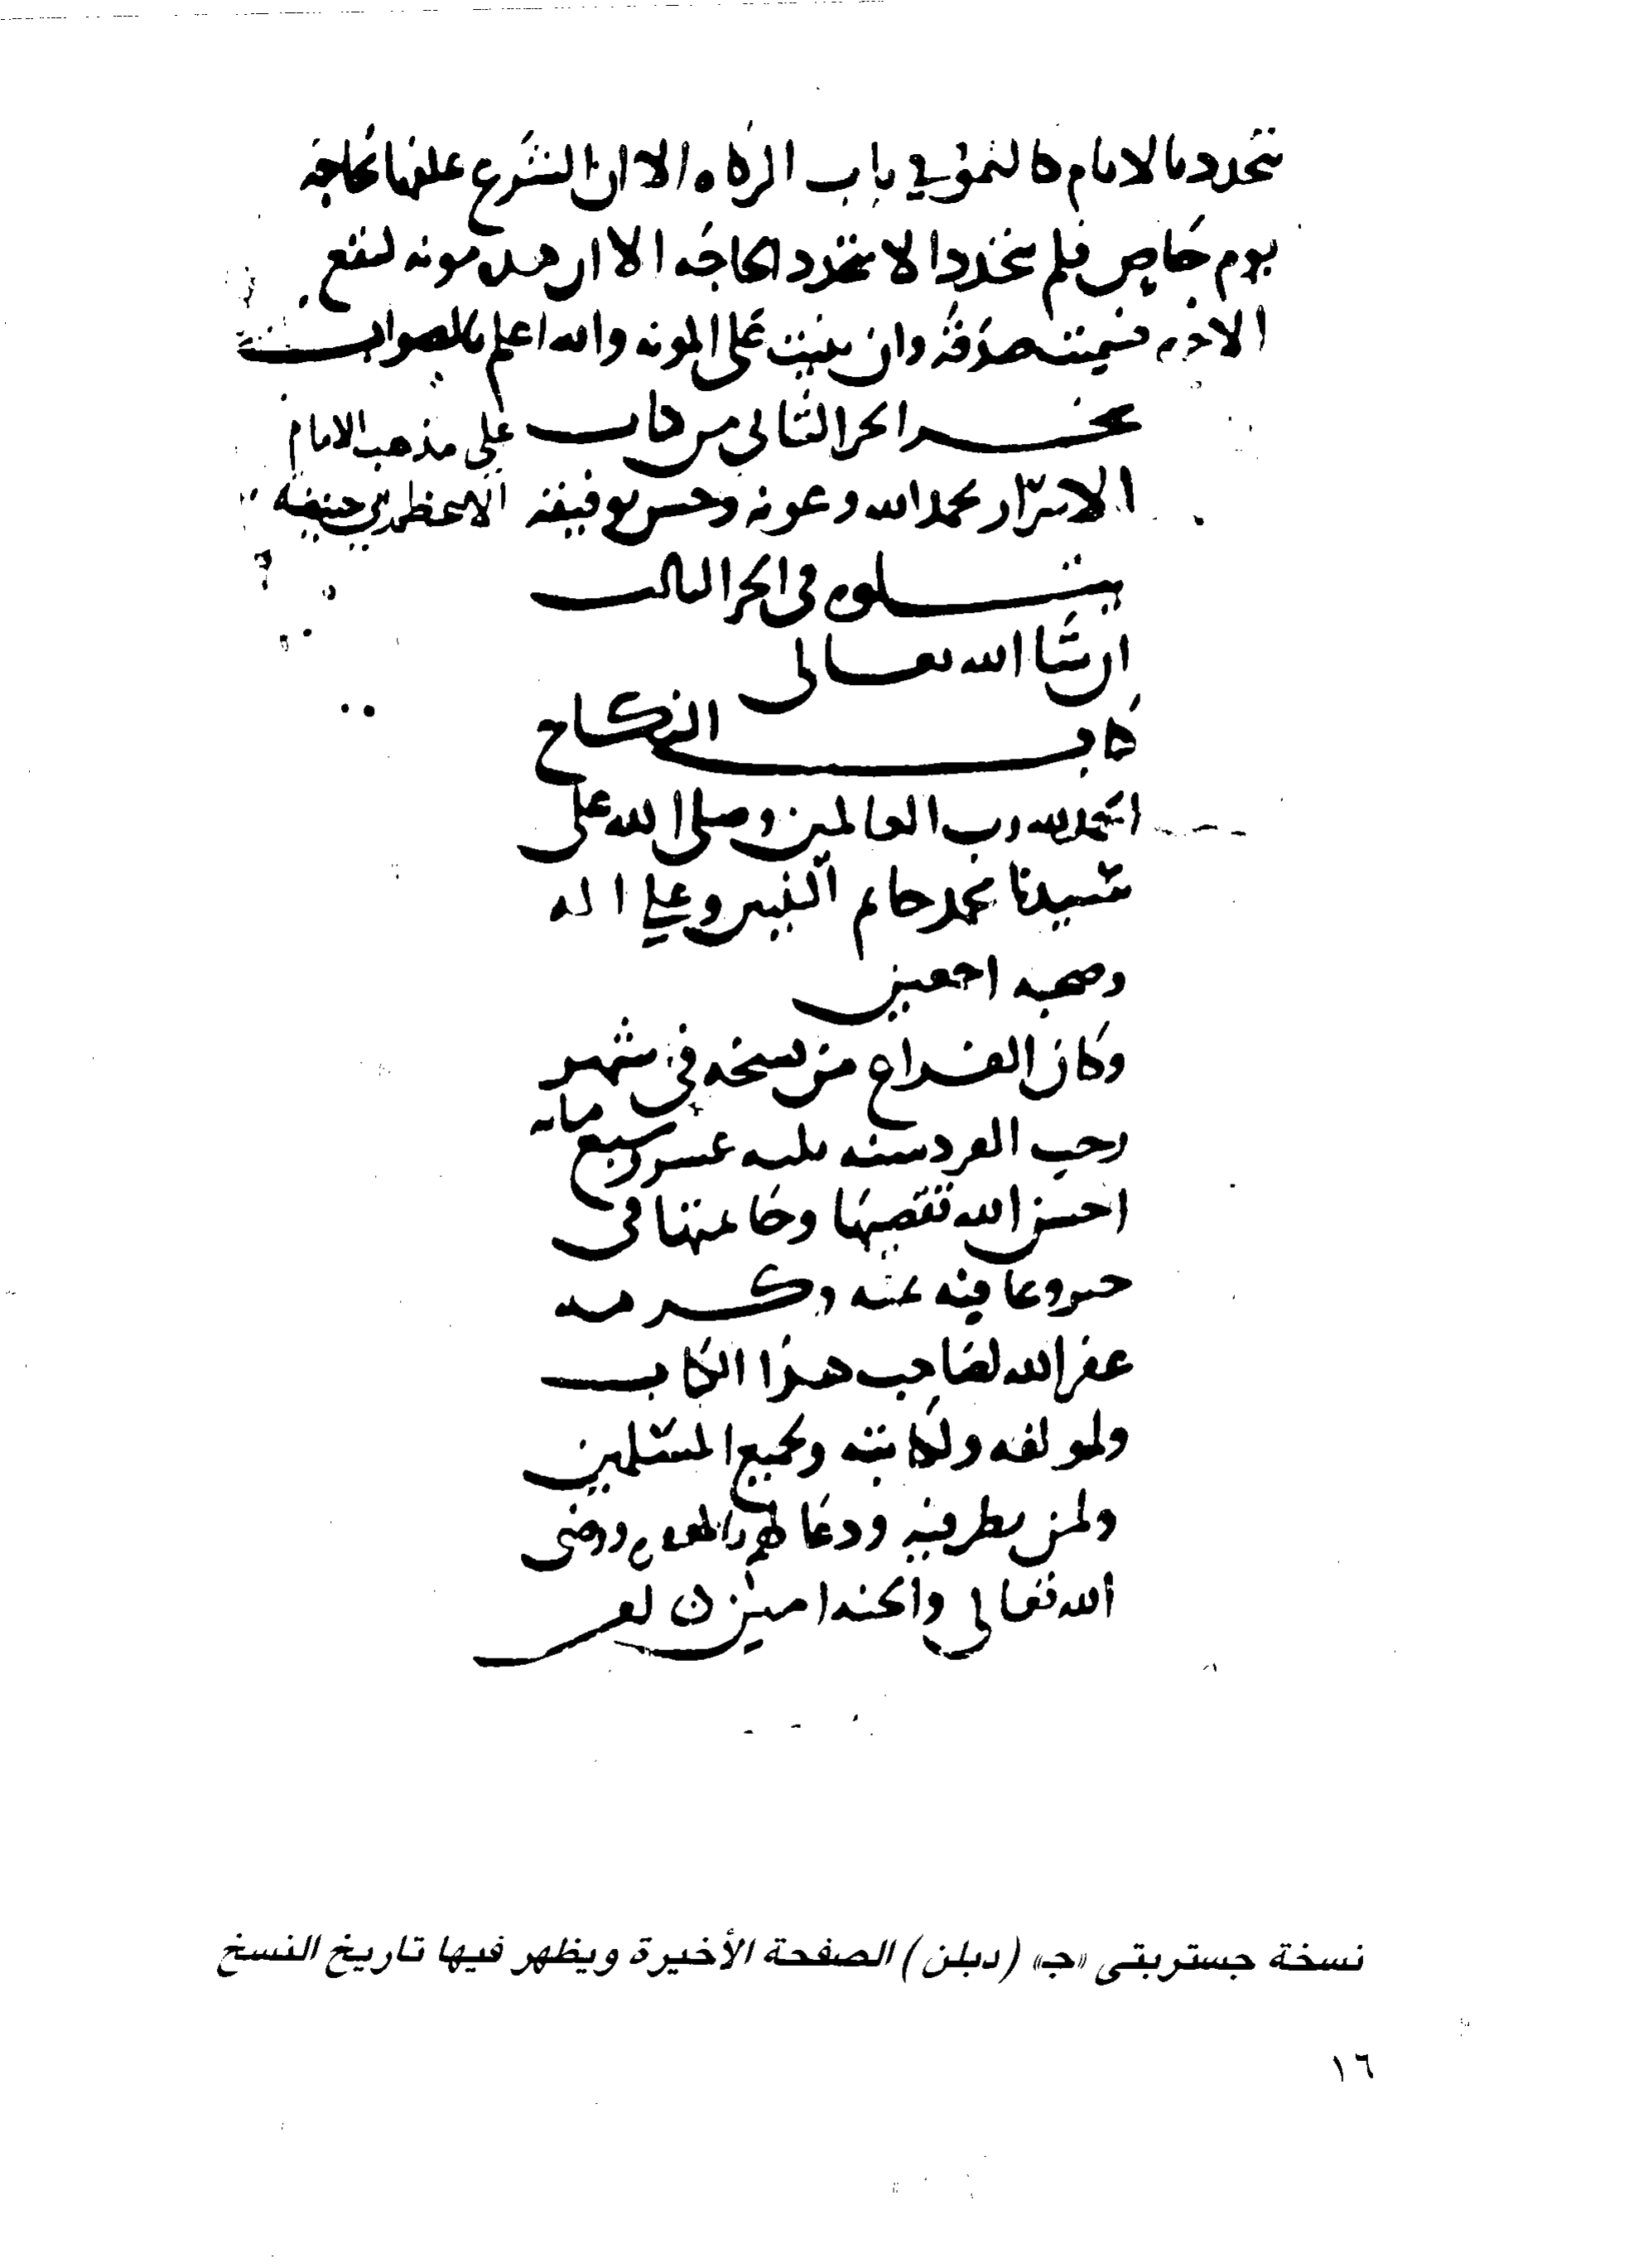 تتجدد بالايام كالنمو في باب الزكاه الا ان الشرع علقها بحاجة
يوم خاص فلم تتجدد الا بتجدد الحاجة الا ان هذه مونه لتقع
فسميت صدقة وان بنيت على المونه والله اعلم بالصواب
نجز الجزء الثاني من كتاب
على مذهب الامام
الاسرار بحمد الله وعونه وحسن توفيقه
الاعظم ابي حنيفة
يتلوه في الجزء الثالث
ان شا الله تعالى
كتاب النكاح
الحمد لله رب العالمين وصلى الله على
سيدنا محمد خاتم النبيين وعلى اله
وصحبه اجمعين
وكان الفراغ من نسخه في شهر
رجب الفرد سنه ثلثه عشر وسبع مايه
احسن الله تقضيها وخاتمتها في
خير وعافيه بمنه وكرمه
غفر الله لصاحب هذا الكتاب
ولمولفه ولكاتبه ولجميع المسلمين
ولمن نظر فيه ودعا لهم ورضى
الله تعالى والجنه امين
نسخة جستربتى «جـ» (دبلن) الصفحة الأخيرة ويظهر فيها تاريخ النسخ
١٦